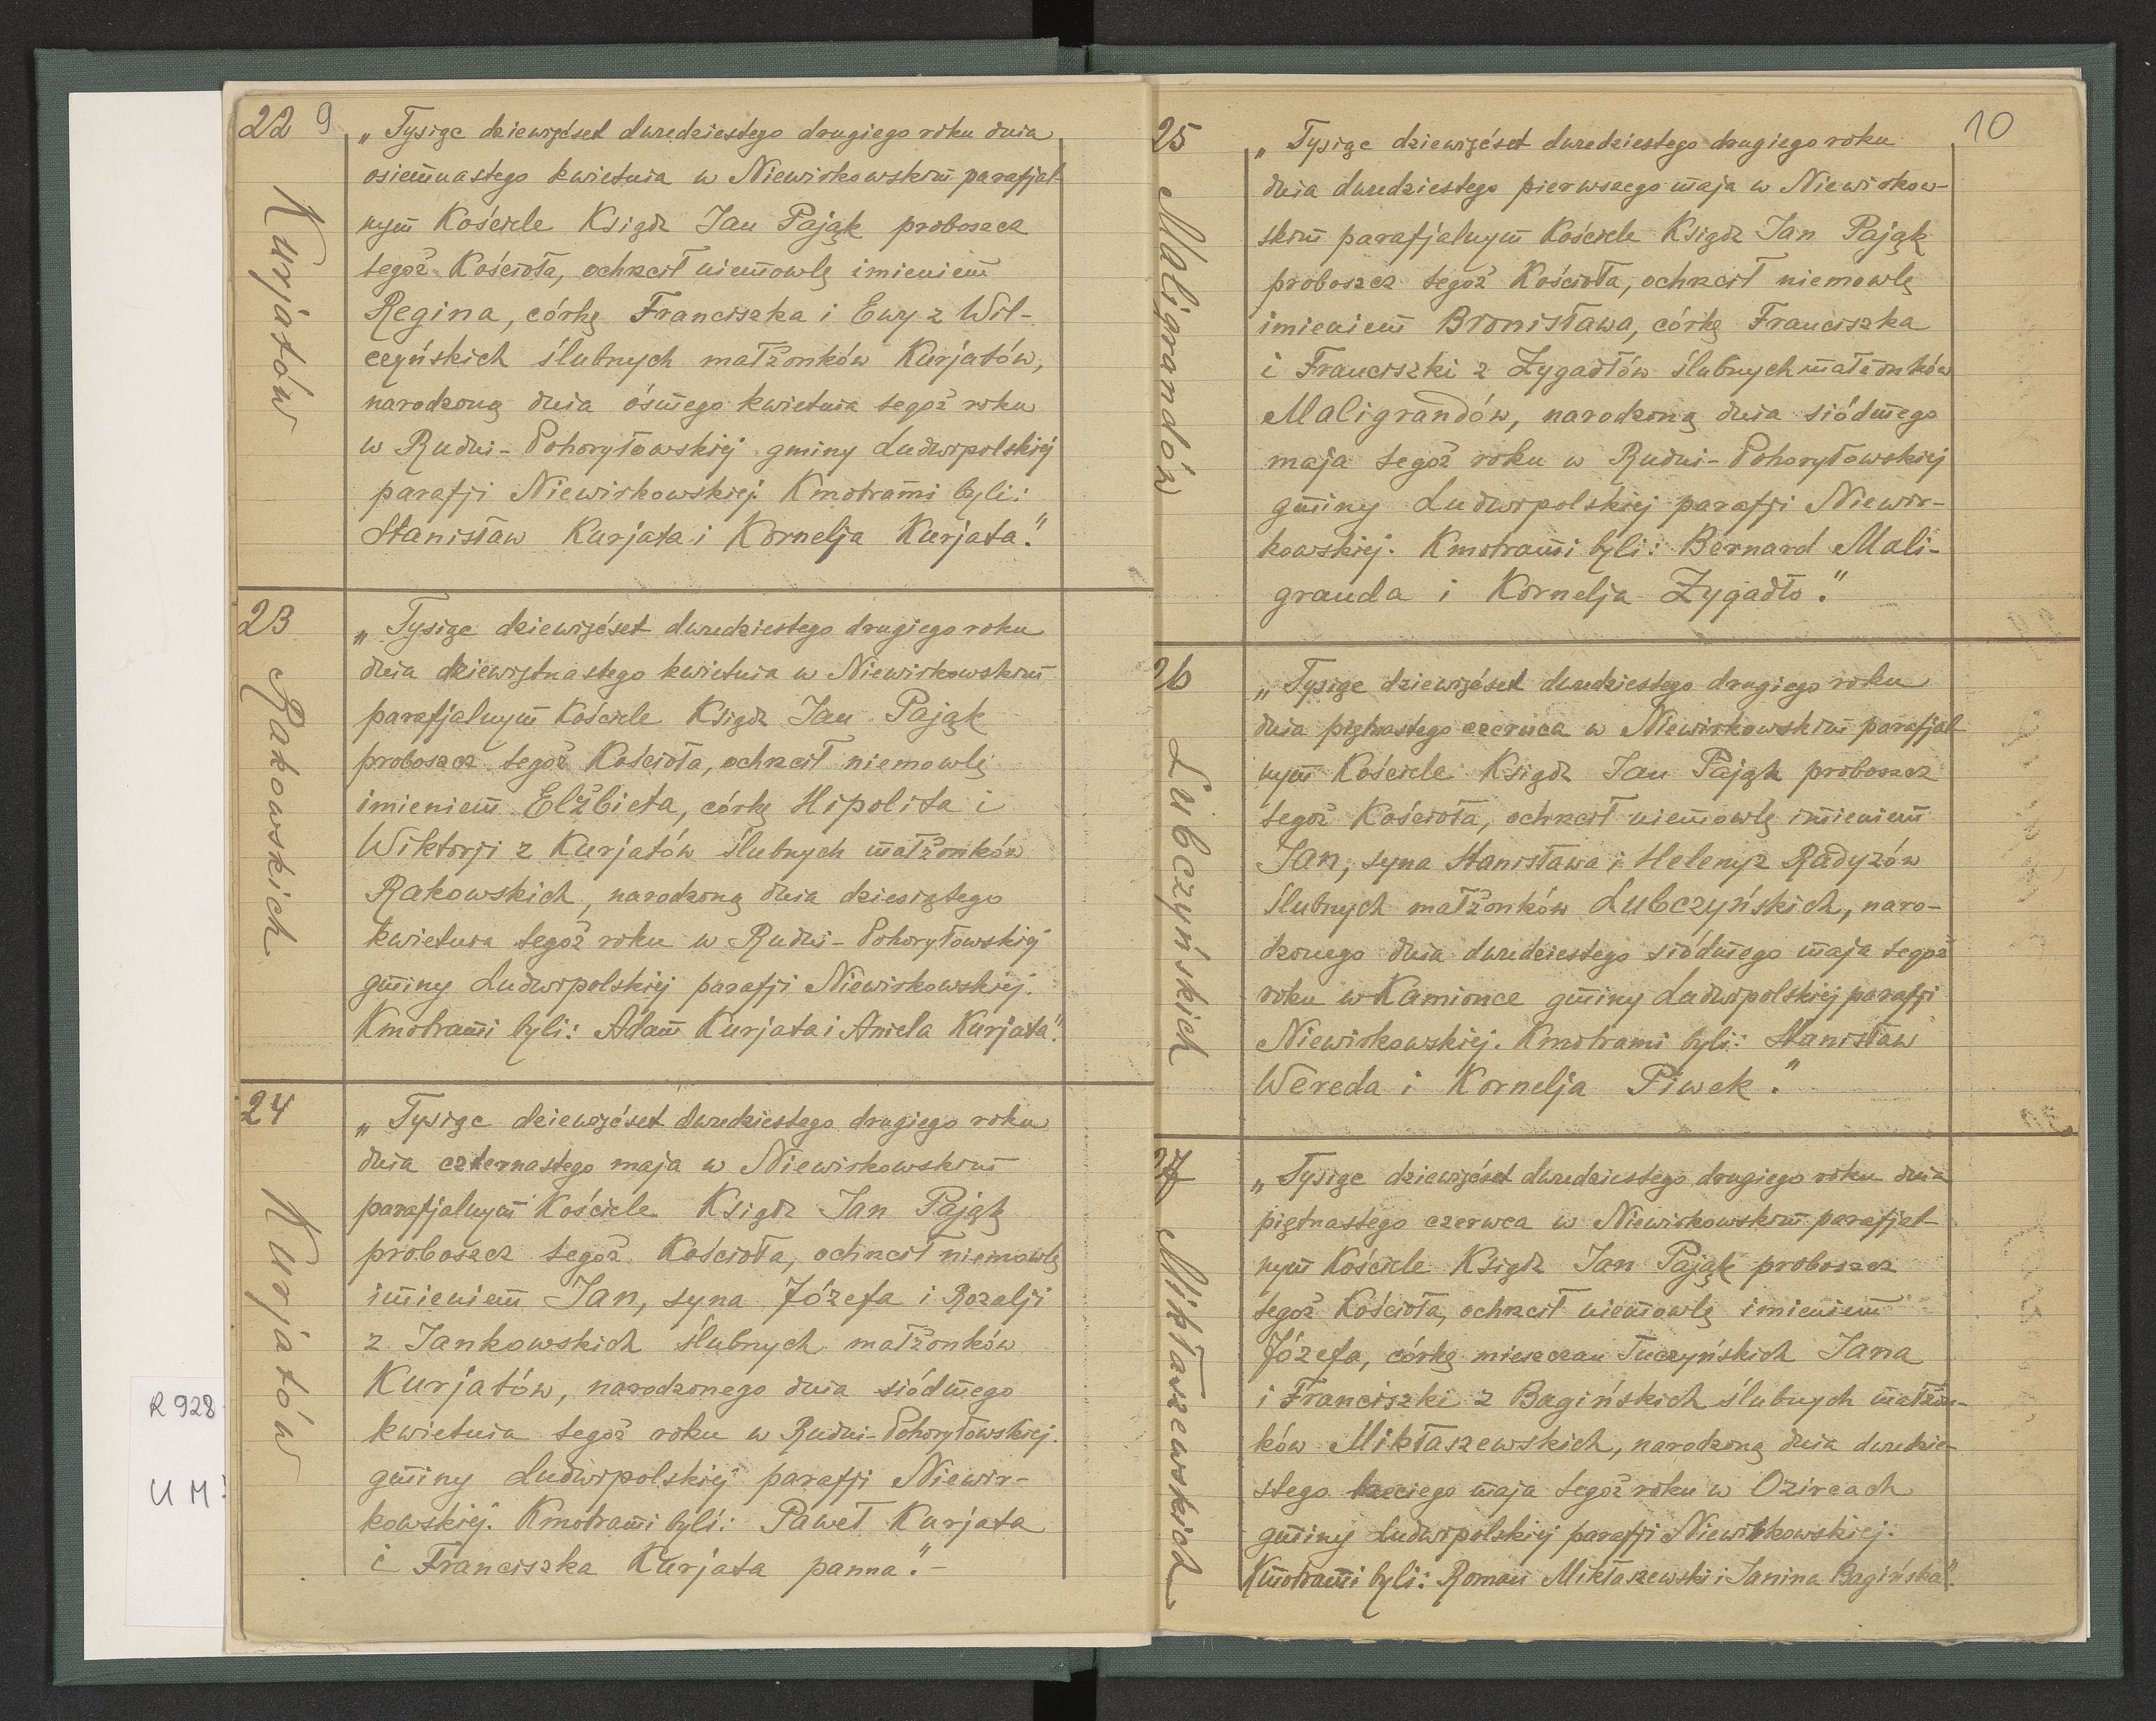 22 9
Kurjatów
„Tysiąc dziewięćset dwudziestego drugiego roku dnia
osiemnastego kwietnia w Niewirkowskim parafjal-
nym Kościele Ksiądz Jan Pająk proboszcz
tegoż Kościoła, ochrzcił niemowlę imieniem
Regina, córkę Franciszka i Ewy z Wil-
czyńskich ślubnych małżonków Kurjatów,
narodzoną dnia ósmego kwietnia tegoż roku
w Rudni-Pohoryłowskiej gminy Ludwipolskiej
parafji Niewirkowskiej. Kmotrami byli:
Stanisław Kurjata i Kornelja Kurjata."
23
Rakowskich
„Tysiąc dziewięćset dwudziestego drugiego roku
dnia dziewiętnastego kwietnia w Niewirkowskim
parafjalnym Kościele Ksiądz Jan Pająk
proboszcz tegoż Kościoła, ochrzcił niemowlę
imieniem Elżbieta, córkę Hipolita i
Wiktorji z Kurjatów ślubnych małżonków
Rakowskich, narodzoną dnia dziesiątego
kwietnia tegoż roku w Rudni-Pohoryłowskiej
gminy Ludwipolskiej parafji Niewirkowskiej.
Kmotrami byli: Adam Kurjata i Aniela Kurjata".
24
Kurjatów
„Tysiąc dziewięćset dwudziestego drugiego roku
dnia czternastego maja w Niewirkowskim
parafjalnym Kościele Ksiądz Jan Pająk
proboszcz tegoż Kościoła, ochrzcił niemowlę
imieniem Jan, syna Józefa i Rozalji
z Jankowskich ślubnych małżonków
Kurjatów, narodzonego dnia siódmego
kwietnia tegoż roku w Rudni-Pohoryłowskiej
gminy Ludwipolskiej parafji Niewir-
kowskiej. Kmotrami byli: Paweł Kurjata
i Franciszka Kurjata panna."-
R 928
U M
10
25
Maligrandów
„Tysiąc dziewięćset dwudziestego drugiego roku
dnia dwudziestego pierwszego maja w Niewirkow-
skim parafjalnym Kościele Ksiądz Jan Pająk
proboszcz tegoż Kościoła, ochrzcił niemowlę
imieniem Bronisława, córkę Franciszka
i Franciszki z Zygadłów ślubnych małżonków
Maligrandów, narodzoną dnia siódmego
maja tegoż roku w Rudni-Pohoryłowskiej
gminy Ludwipolskiej parafji Niewir-
kowskiej. Kmotrami byli: Bernard Mali-
granda i Kornelja Zygadło."
26
Lubczyńskich
„Tysiąc dziewięćset dwudziestego drugiego roku
dnia piętnastego czerwca w Niewirkowskim parafjal-
nym Kościele Ksiądz Jan Pająk proboszcz
tegoż Kościoła, ochrzcił niemowlę imieniem
Jan, syna Stanisława i Heleny z Radyzów
ślubnych małżonków Lubczyńskich, naro-
dzonego dnia dwudziestego siódmego maja tegoż
roku w Kamionce gminy Ludwipolskiej parafji
Niewirkowskiej. Kmotrami byli: Stanisław
Wereda i Kornelja Piwek."
27
Mikłaszewskich
„Tysiąc dziewięćset dwudziestego drugiego roku dnia
piętnastego czerwca w Niewirkowskim parafjal-
nym Kościele Ksiądz Jan Pająk proboszcz
tegoż Kościoła, ochrzcił niemowlę imieniem
Józefa, córkę mieszczan Tuczyńskich Jana
i Franciszki z Bagińskich ślubnych małżon-
ków Mikłaszewskich, narodzoną dnia dwudzie-
stego trzeciego maja tegoż roku w Ozircach
gminy Ludwipolskiej parafji Niewirkowskiej.
Kmotrami byli: Roman Mikłaszewski i Janina Bagińska".